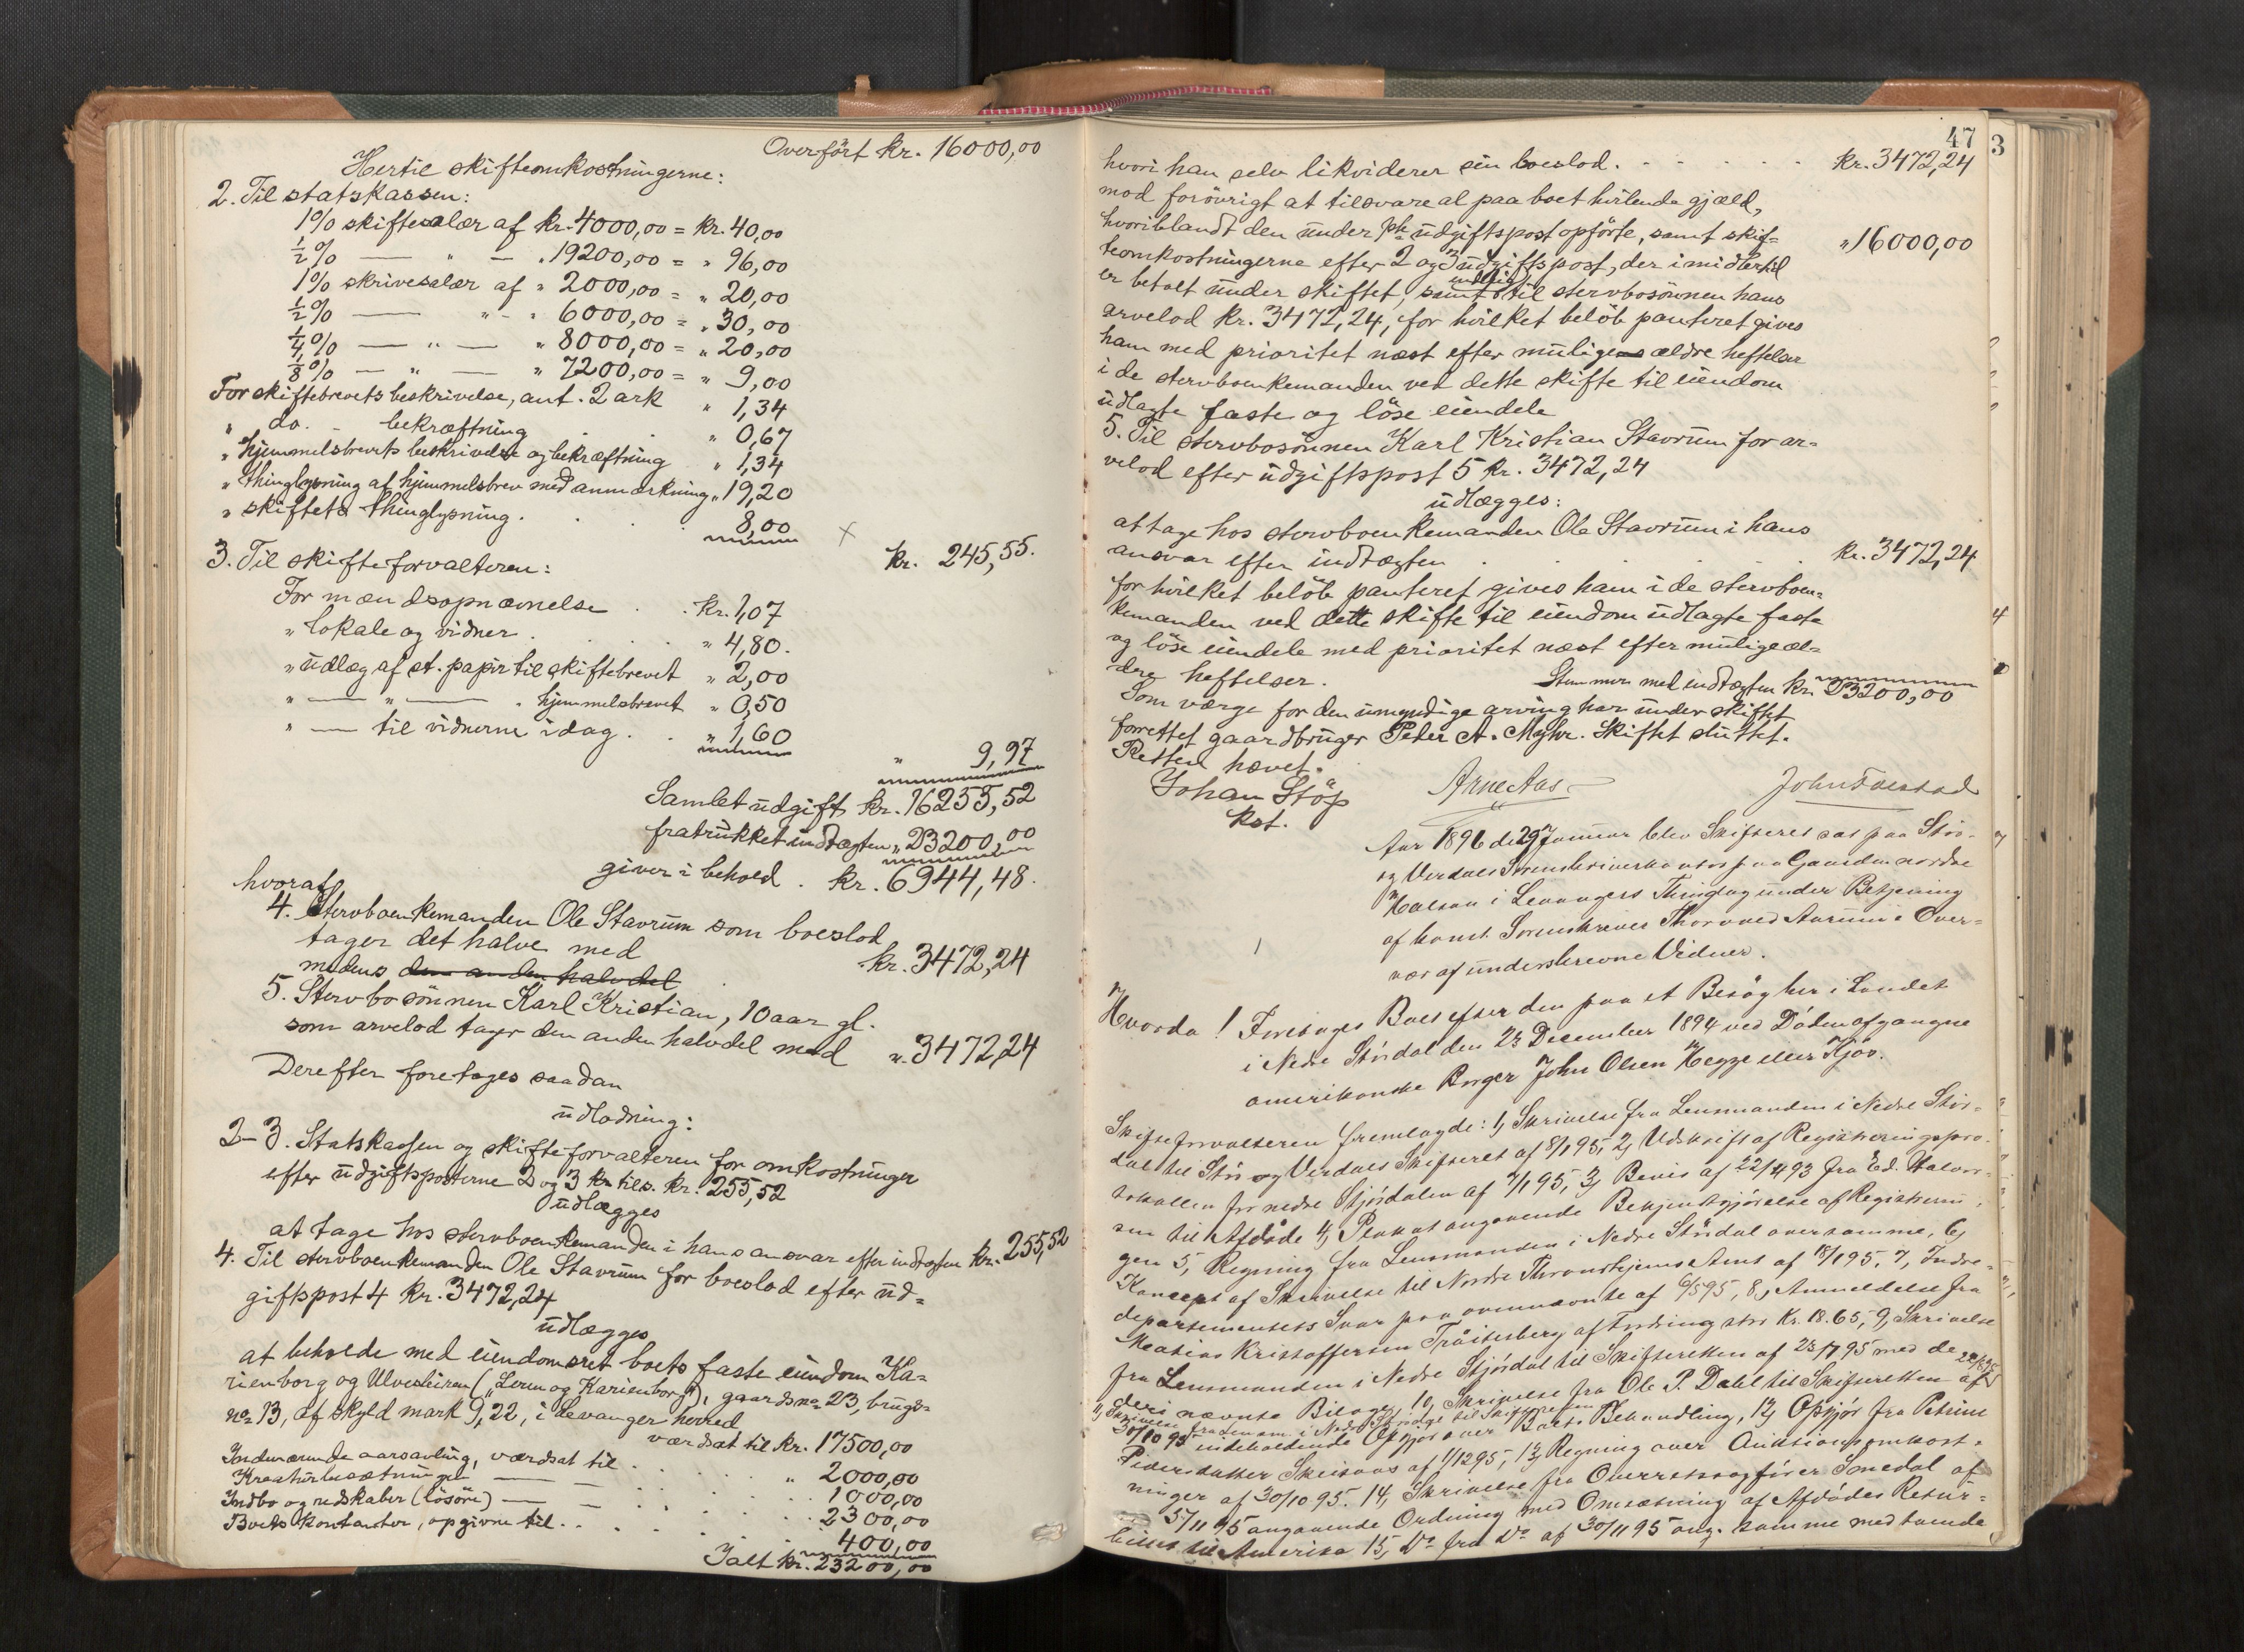 Overført kr. 16000,00
Hertil skifteomkostningerne:
2. Til statskassen:
1% skiftesalær af kr. 4000,00 = kr. 40,00
½% — " — " 19200,00 = " 96,00
1% skrivesalær af " 2000,00 = " 20,00
½% — " - " 6000,00 = " 30,00
¼% — " — " 8000,00 = " 20,00
⅛% — " — " 7200,00 = " 9,00
For skiftebrevets beskrivelse, ant. 2 ark " 1,34
" do. - bekræftning . . " 0,67
" hjemmelsbrevets beskrivelse og bekræftning " 1,34
" thinglysning af hjemmelsbrev med anmærkning " 19,20
" skiftets thinglysning . . . 8,00
kr. 245,55.
3. Til skifteforvalteren:
For mændsopnævnelse . . kr. 1,07
" lokale og vidner . . . " 4,80.
" udlæg af st. papir til skiftebrevet " 2,00
" — " — " hjemmelsbrevet " 0,50
" — til vidnerne idag . . " 1,60
" 9,97
Samlet udgift kr. 16255,52
fratrukket indtægten " 23200,00
giver i behold . kr. 6944,48.
hvoraf
4. Stervboenkemanden Ole Stavrum som boeslod
tager det halve med . kr. 3472,24
medens den anden halvdel
5. Stervbosønnen Karl Kristian, 10 aar gl.
som arvelod tager den anden halvdel med " 3472,24
Derefter foretages saadan
udlodning:
2-3. Statskassen og skifteforvalteren for omkostninger
efter udgiftsposterne 2 og 3 kr tils. kr. 255,52
udlægges
at tage hos stervboenkemanden i hans ansvar efter indtægten kr. 255,52
4. Til stervboenkemanden Ole Stavrum for boeslod efter ud-
giftspost 4 kr. 3472,24
udlægges
at beholde med eiendomsret boets faste eiendom Ka-
rienborg og Ulvesleiren („Leren og Karienborg"), gaardsno 23, brugs-
no 13, af skyld mark 9,22, i Levanger herred
værdsat til kr. 17500,00
Indeværende aarsavling, værdsat til . . . " 2000,00
Kreaturbesætningen — . . . 1000,00
Indbo og redskaber (løsøre) — — . . . 2300,00
Boets kontanter, opgivne til . . . . 400,00
Ialt kr. 23200,00
47
3
hvori han selv likviderer sin boeslod . - - - - - kr. 3472,24
mod forøvrigt at tilsvare al paa boet hvilende gjæld,
hvoriblandt den under 1ste udgiftspost opførte, samt skif-
" 16000,00
teomkostningerne efter 2 og 3 udgiftspost, der imidlertid
er betalt under skiftet, samt endelig til stervbosønnen hans
arvelod kr. 3472,24, for hvilket beløb panteret gives
ham med prioritet næst efter mulige ældre heftelser
i de stervboenkemanden ved dette skifte til eiendom
udlagte faste og løse eiendele
5. Til stervbosønnen Karl Kristian Stavrum for ar-
velod efter udgiftspost 5 kr. 3472,24
udlægges:
at tage hos stervboenkemanden Ole Stavrum i hans
ansvar efter indtægten . . . kr. 3472,24
for hvilket beløb panteret gives ham i de stervboen-
kemanden ved dette skifte til eiendom udlagte faste
og løse eiendele med prioritet næst efter mulige æl-
dre heftelser. Stemmer med indtægten kr. 23200,00
Som værge for den umyndige arving har under skiftet
forrettet gaardbruger Peder A. Myhr. Skiftet sluttet.
Retten hævet.
Johan Støp Arne Aas John Folstad
kst.
Aar 1896 de 29 Januar blev Skifteret sat paa Stør-
og Verdals Sorenskriverkontor paa Gaarden nordre
Halsan i Levangers Thinglag under Betjening
af konst. Sorenskriver Thorvald Aurum i Over-
vær af underskrevne Vidner.
Hvorda! Foretages Boet efter den paa et Besøg her i Landet
i Nedre Størdal den 23 December 1894 ved Døden afgangne
amerikanske Borger John Olsen Hegge eller Kjøv.
Skifteforvalteren fremlagde: 1, Skrivelse fra Lensmanden i Nedre Stør-
dal til Stør og Verdals Skifteret af 8/1 95, 2, Udskrift af Registreringspro-
tokollen for nedre Stjørdalen af 7/1 95, 3, Bevis af 22/4 93 fra Ed. Halvor-
sen til Afdøde 4, Plakat angaaende Bekjendtgjørelse af Registrerin-
gen 5, Regning fra Lensmanden i Nedre Størdal over samme, 6,
Koncept af Skrivelse til Nordre Throndhjems Amt af 18/1 95. 7, Indre-
departementets Svar paa ovennævnte af 6/5 95, 8, Anmeldelse fra
Matias Kristoffersen Trøiterberg af Fordring stor Kr. 18.65, 9, Skrivelse
fra Lensmanden i Nedre Stjørdal til Skifteretten af 23/7 95 med de
deri nævnte Bilage, 10, Skrivelse fra Ole P. Dahl til Skifteretten af 28/8 95
11, Skrivelse fra Lensm. i Nedre Størdal til Skifteretten
30/10 95 indeholdende Opgjør over Boets Behandling, 12, Opgjør fra Petrine
Pedersdatter Skeisaas af 1/12 95, 13, Regning over Auktionsomkost-
ninger af 30/10 95. 14, Skrivelse fra Overretssagfører Smedal af
5/11 95 angaaende Ordning med Omsætning af Afdødes Retur-
billet til Amerika 15, Do fra Do af 30/11 95 ang. samme med tvende